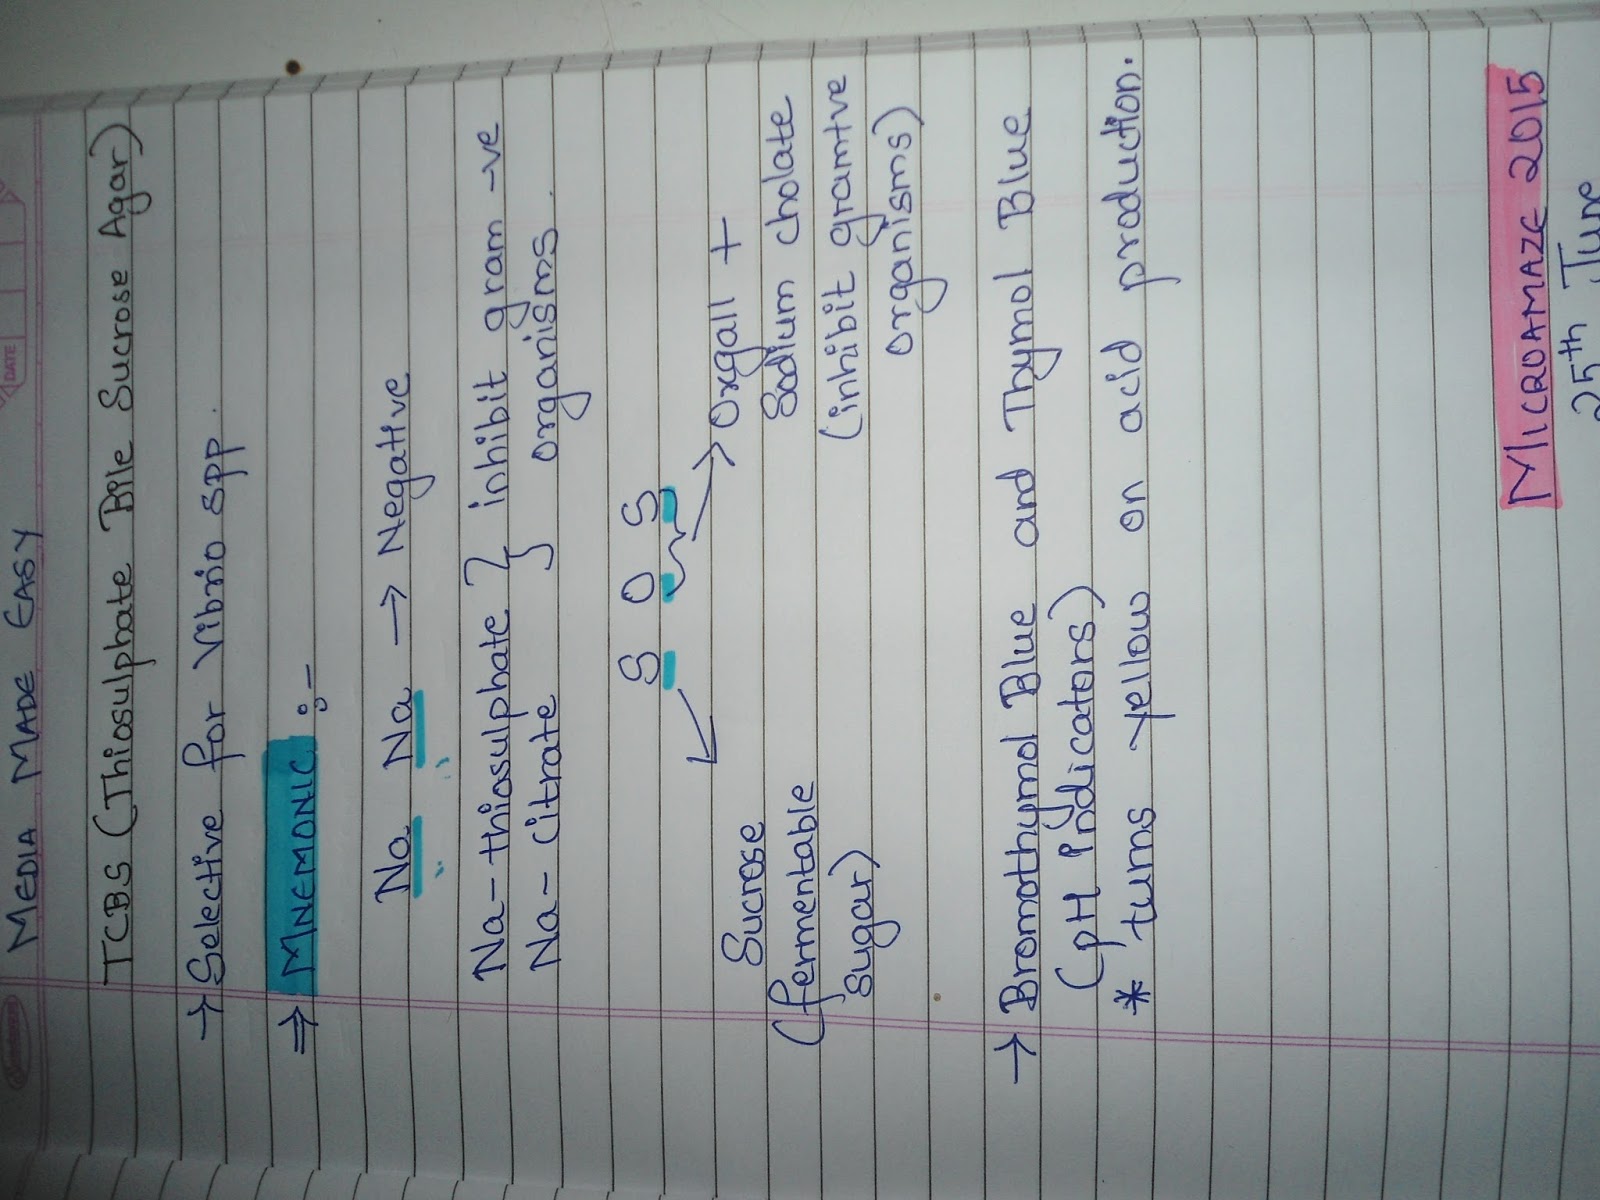 MEDIA MADE EASY
DATE
TCBS (Thiosulphate Bile Sucrose Agar)
→ Selective for Vibrio spp.
⇒ MNEMONIC :-
Na Na → Negative
Na-thiosulphate } inhibit gram -ve
Na-Citrate organisms.
S O S
Sucrose
(fermentable
sugar)
Oxgall +
Sodium cholate
(inhibit gram+ve
organisms)
→ Bromothymol Blue and Thymol Blue
(pH Indicators)
* turns yellow on acid production.
MICROAMAZE 2015
25th June